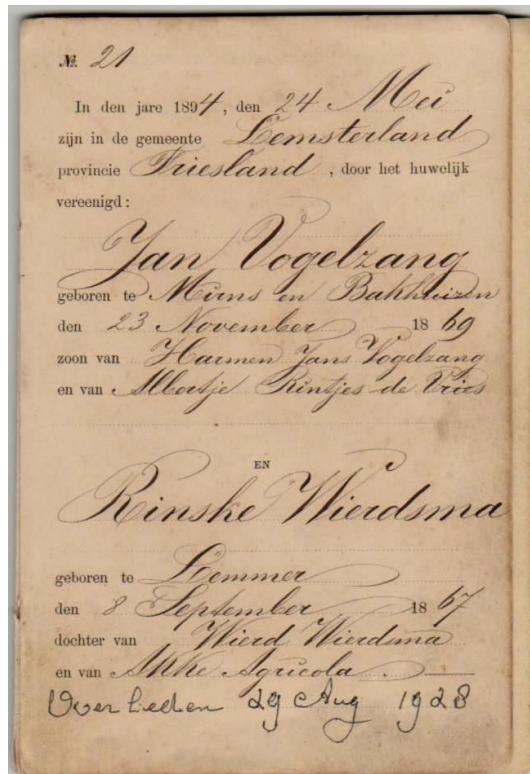 №. 21
In den jare 1894, den 24 Mei
zijn in de gemeente Lemsterland
provincie Friesland, door het huwelijk
vereenigd:
Jan Vogelzang
geboren te Mirns en Bakhuizen
den 23 November 1869
zoon van Harmen Jans Vogelzang
en van Albertje Rintjes de Vries
EN
Rinske Wierdsma
geboren te Lemmer
den 8 September 1867
dochter van Wierd Wierdsma
en van Akke Agricola.
Overleden 29 Aug 1928